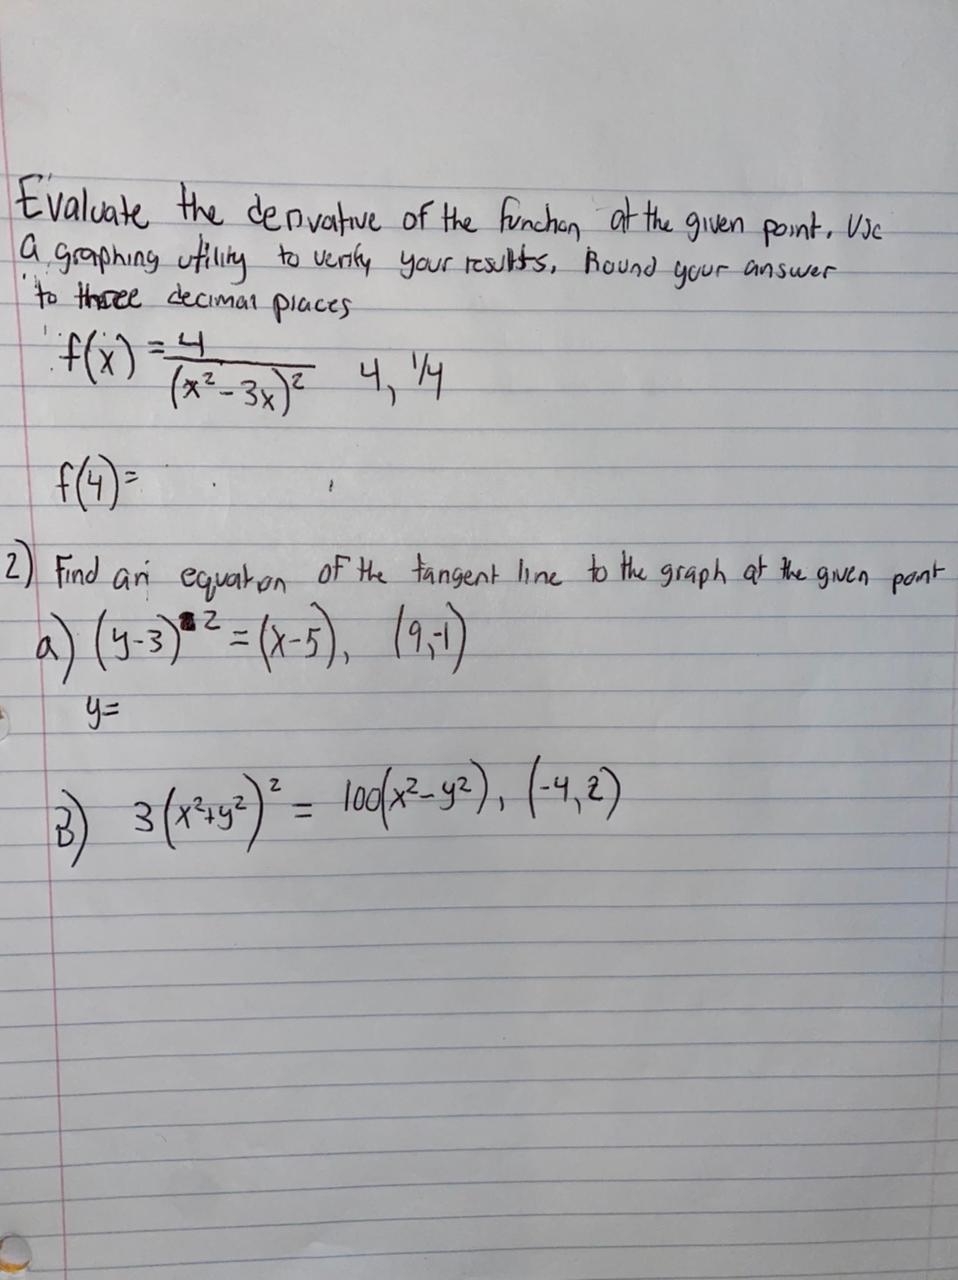 Evaluate the derivative of the function at the given point. Use
a graphing utility to verify your results. Round your answer
to three decimal places
f(x) = 4/(x² - 3x)² 4, 1/4
f(4) =
2) Find an equation of the tangent line to the graph at the given point
a) (y-3)² = (x-5), (9,-1)
y=
B) 3(x²+y²)² = 100(x²-y²), (-4,2)